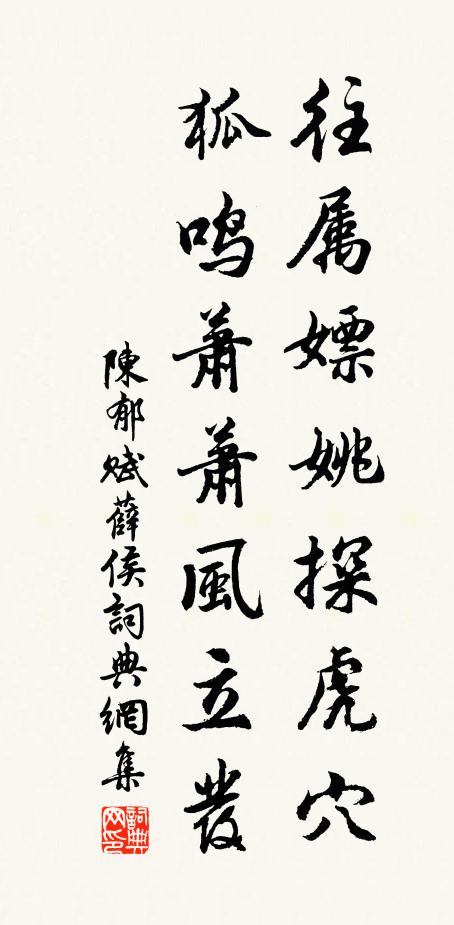 往属嫖姚探虎穴
狐鸣萧萧风立发
陳郁賦薛侯詞典網集
詞典网印